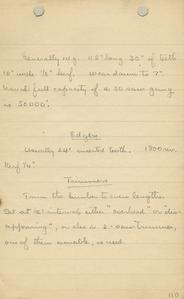 Generally 42'. 45' long 30" of teeth
10" wide 1/8" kerf. Wear down to 7".
Usual full capacity of a 50 saw gang
is 50000'.
Edgers
Usually 24" inserted teeth. 1800 rev.
Kerf 1/4".
Trimmers
Trims the lumber to even lengths.
Set at 2' intervals either "overhead" or dis-
appearing", or else a 2-saw trimmer,
one of them movable, is used.